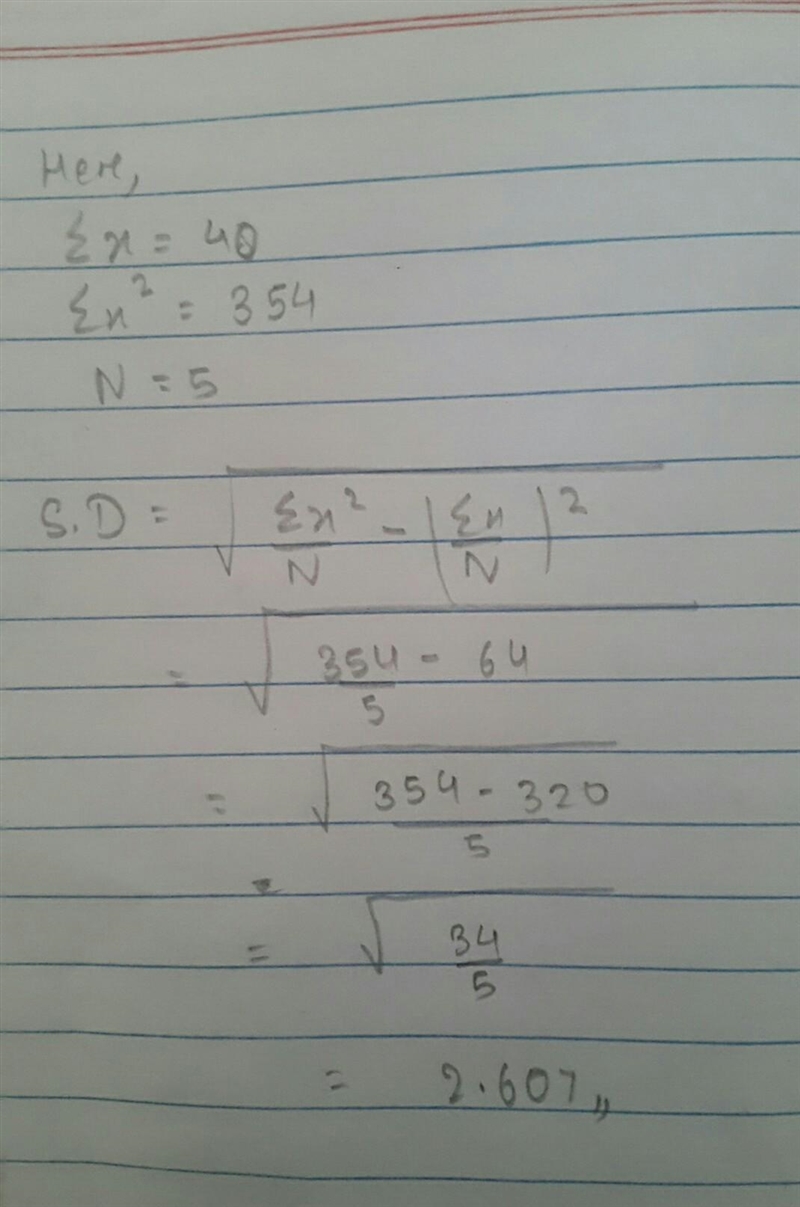 Here,
Σx = 40
Σx² = 354
N = 5
S.D = √(Σx²/N - (Σx/N)²)
= √(354/5 - 64)
= √((354 - 320)/5)
= √(34/5)
= 2.607,,